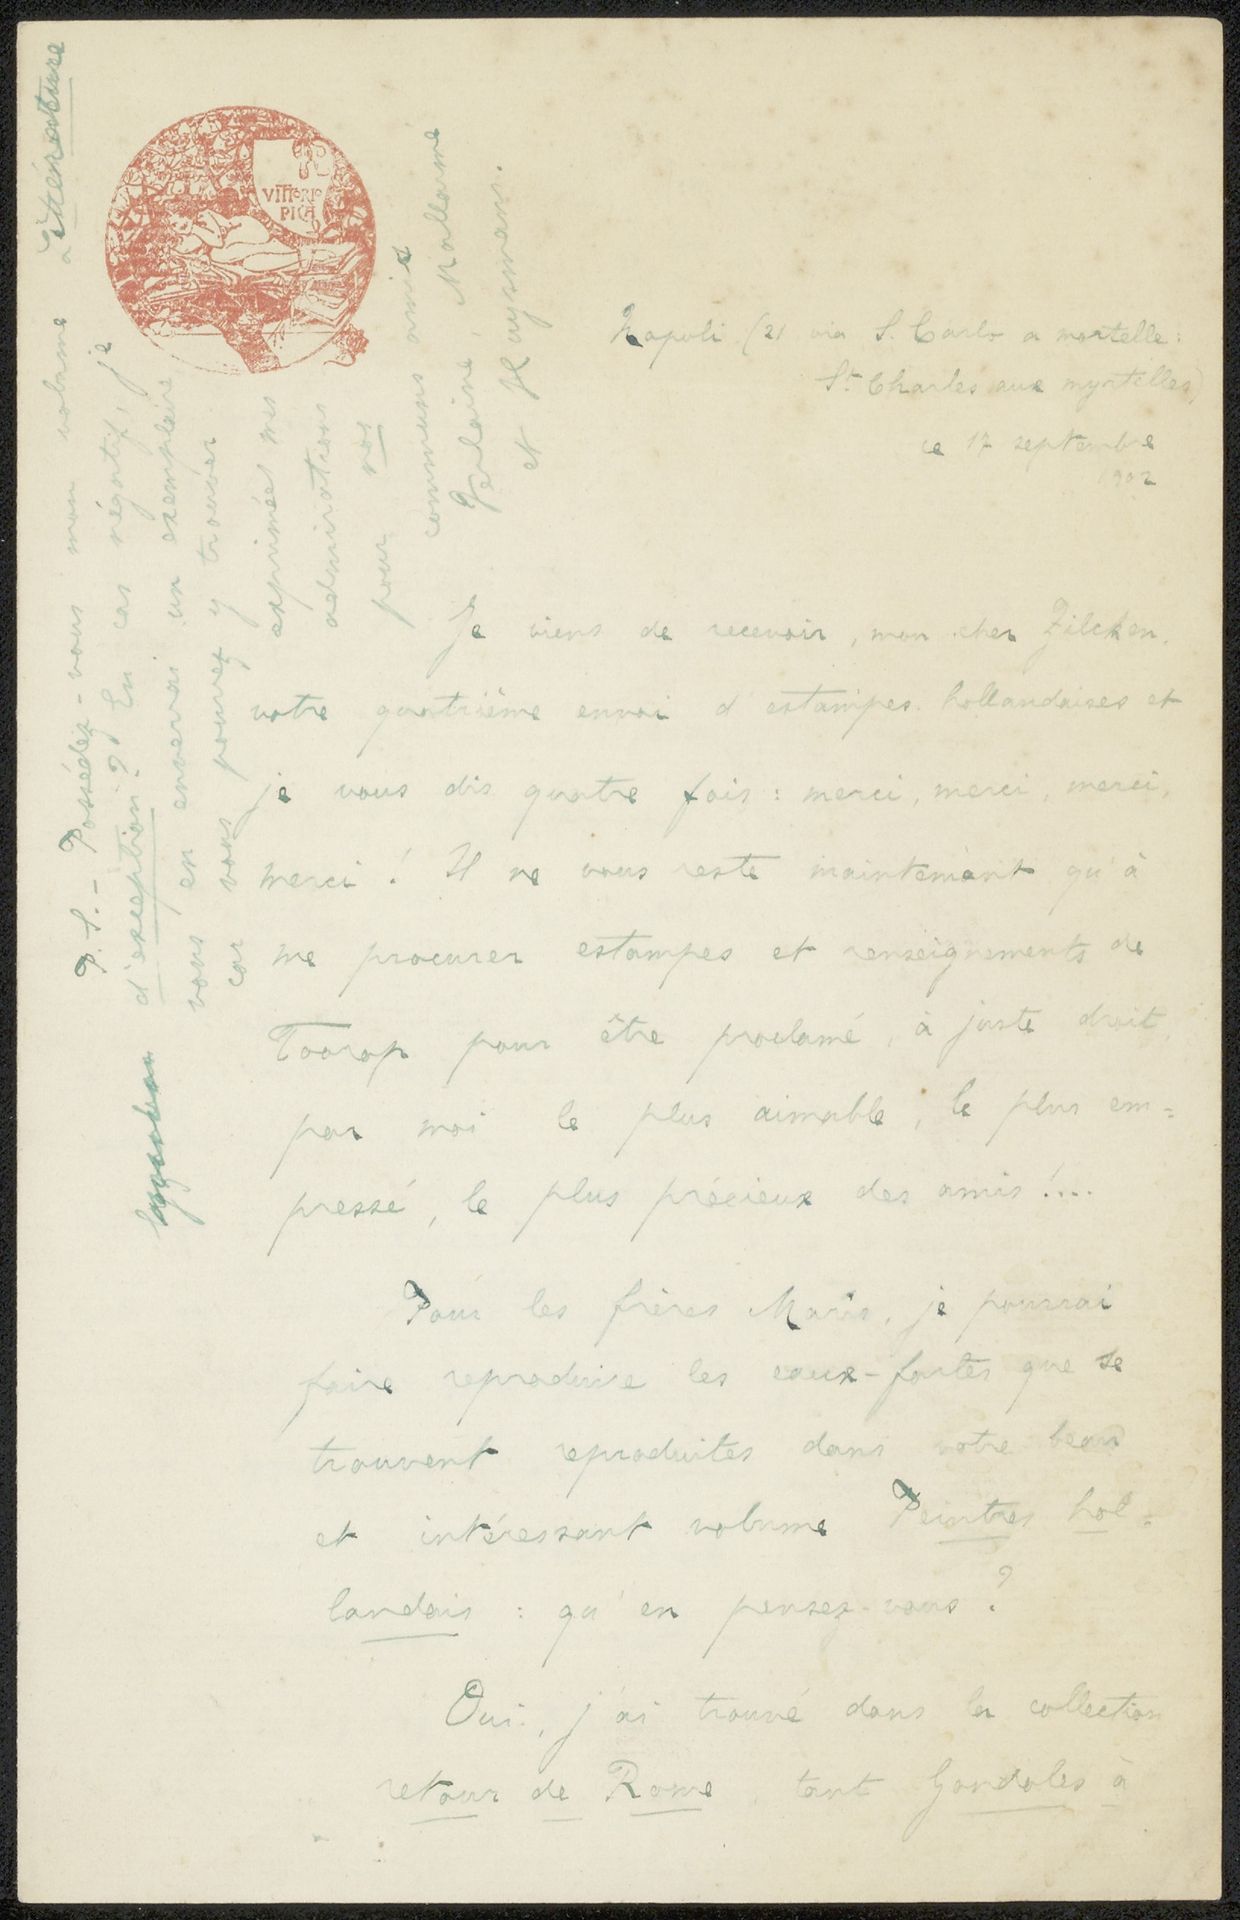 VITTORIO
PICA
Napoli (21 via S. Carlo a mortelle:
St Charles aux myrtilles)
ce 17 septembre
1902
Je viens de recevoir, mon cher Zilcken,
votre quatrième envoi d'estampes hollandaises et
je vous dis quatre fois : merci, merci, merci,
merci ! Il ne vous reste maintenant qu'à
me procurer estampes et renseignements de
Toorop pour être proclamé, à juste droit,
par moi le plus aimable, le plus em=
pressé, le plus précieux des amis !....
Pour les frères Maris, je pourrai
faire reproduire les eaux-fortes que se
trouvent reproduites dans votre beau
et intéressant volume Peintres hol=
landais : qu'en pensez-vous ?
Oui, j'ai trouvé dans la collection
retour de Rome, tant Gondoles à
P.S. – Possédez-vous mon volume Littérature
d'exception ? En cas négatif, je
vous en enverrai un exemplaire,
car vous pouvez y trouver
exprimées mes
admirations
pour vos
communs amis
Verlaine, Mallarmé
et Huysmans.